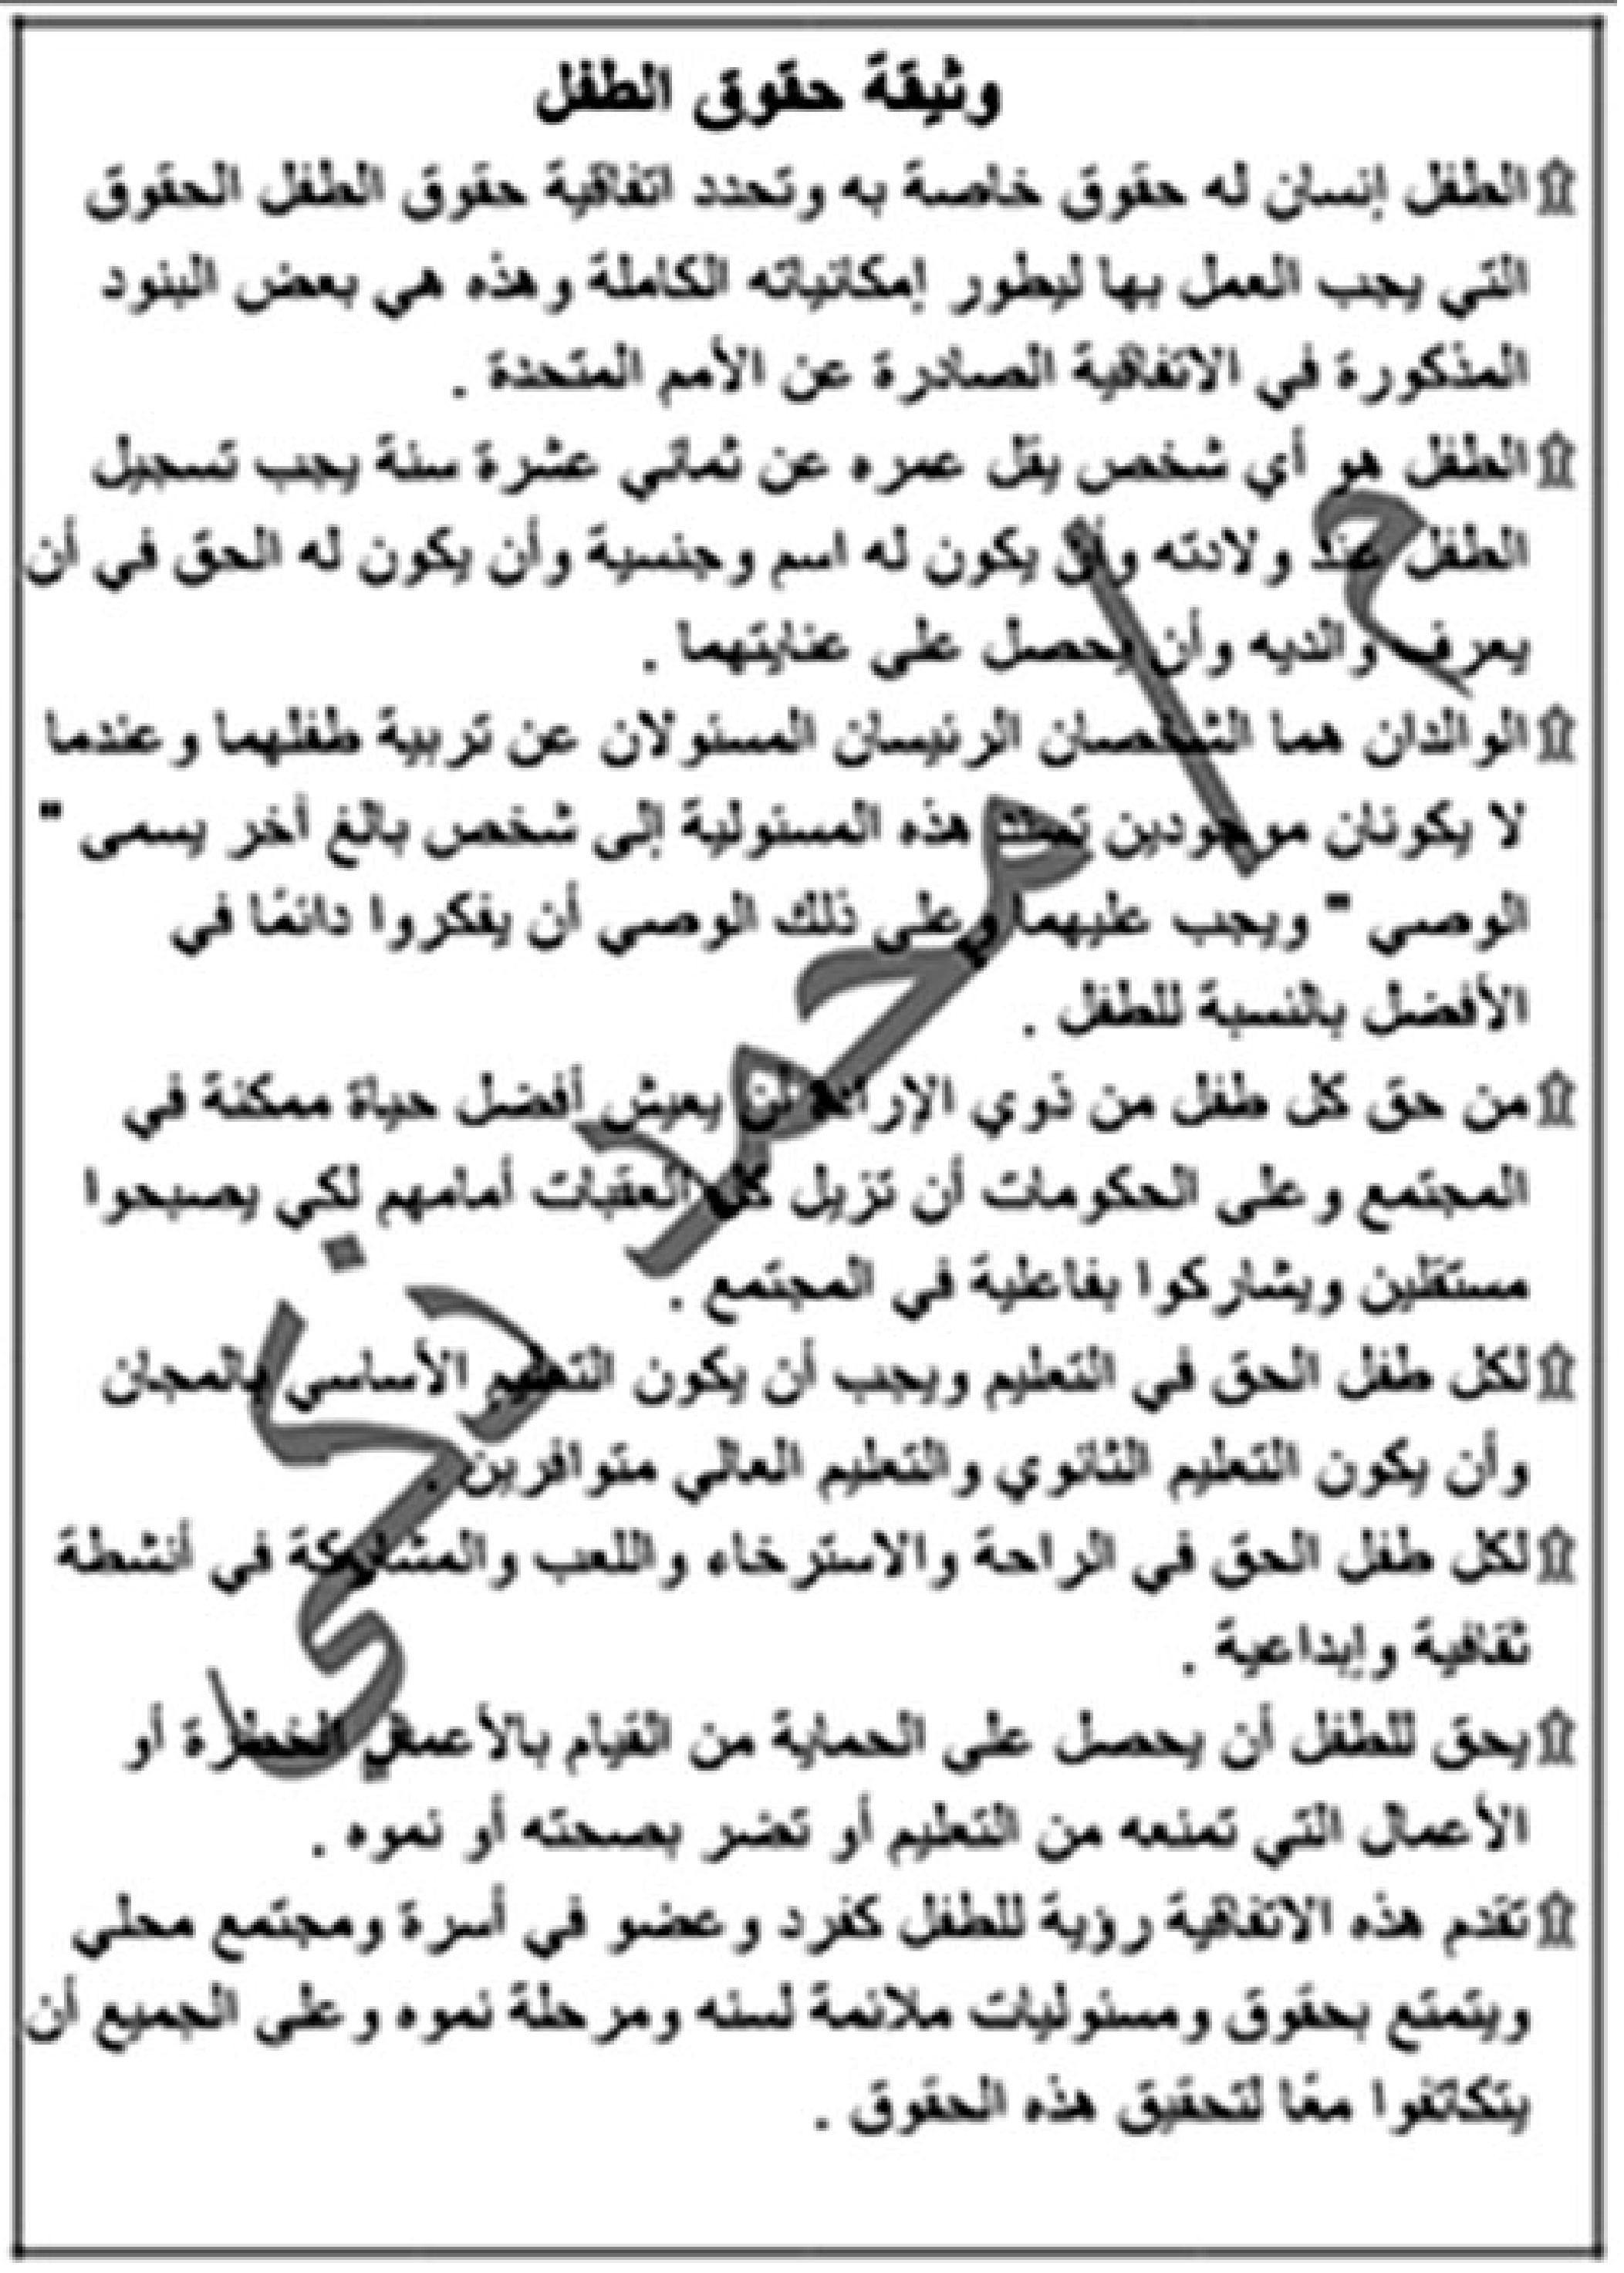 وثيقة حقوق الطفل
۩ الطفل إنسان له حقوق خاصة به وتحدد اتفاقية حقوق الطفل الحقوق
التي يجب العمل بها ليطور إمكانياته الكاملة وهذه هي بعض البنود
المذكورة في الاتفاقية الصادرة عن الأمم المتحدة .
۩ الطفل هو أي شخص يقل عمره عن ثماني عشرة سنة يجب تسجيل
الطفل عند ولادته وأن يكون له اسم وجنسية وأن يكون له الحق في أن
يعرف والديه وأن يحصل على عنايتهما .
۩ الوالدان هما الشخصان الرئيسان المسئولان عن تربية طفلهما وعندما
لا يكونان موجودين هذه المسئولية إلى شخص بالغ أخر يسمى "
الوصي " ويجب عليهما وعلى ذلك الوصي أن يفكروا دائمًا في
الأفضل بالنسبة للطفل .
۩ من حق كل طفل من ذوي الإرادة أن يعيش أفضل حياة ممكنة في
المجتمع وعلى الحكومات أن تزيل كل العقبات أمامهم لكي يصبحوا
مستقلين ويشاركوا بفاعلية في المجتمع .
۩ لكل طفل الحق في التعليم ويجب أن يكون التعليم الأساسي بالمجان
وأن يكون التعليم الثانوي والتعليم العالي متوافرين .
۩ لكل طفل الحق في الراحة والاسترخاء واللعب والمشاركة في أنشطة
ثقافية وإبداعية .
۩ يحق للطفل أن يحصل على الحماية من القيام بالأعمال الخطرة أو
الأعمال التي تمنعه من التعليم أو تضر بصحته أو نموه .
۩ تقدم هذه الاتفاقية رؤية للطفل كفرد وعضو في أسرة ومجتمع محلي
ويتمتع بحقوق ومسئوليات ملائمة لسنه ومرحلة نموه وعلى الجميع أن
يتكاتفوا معًا لتحقيق هذه الحقوق .
أ / محمد زكي